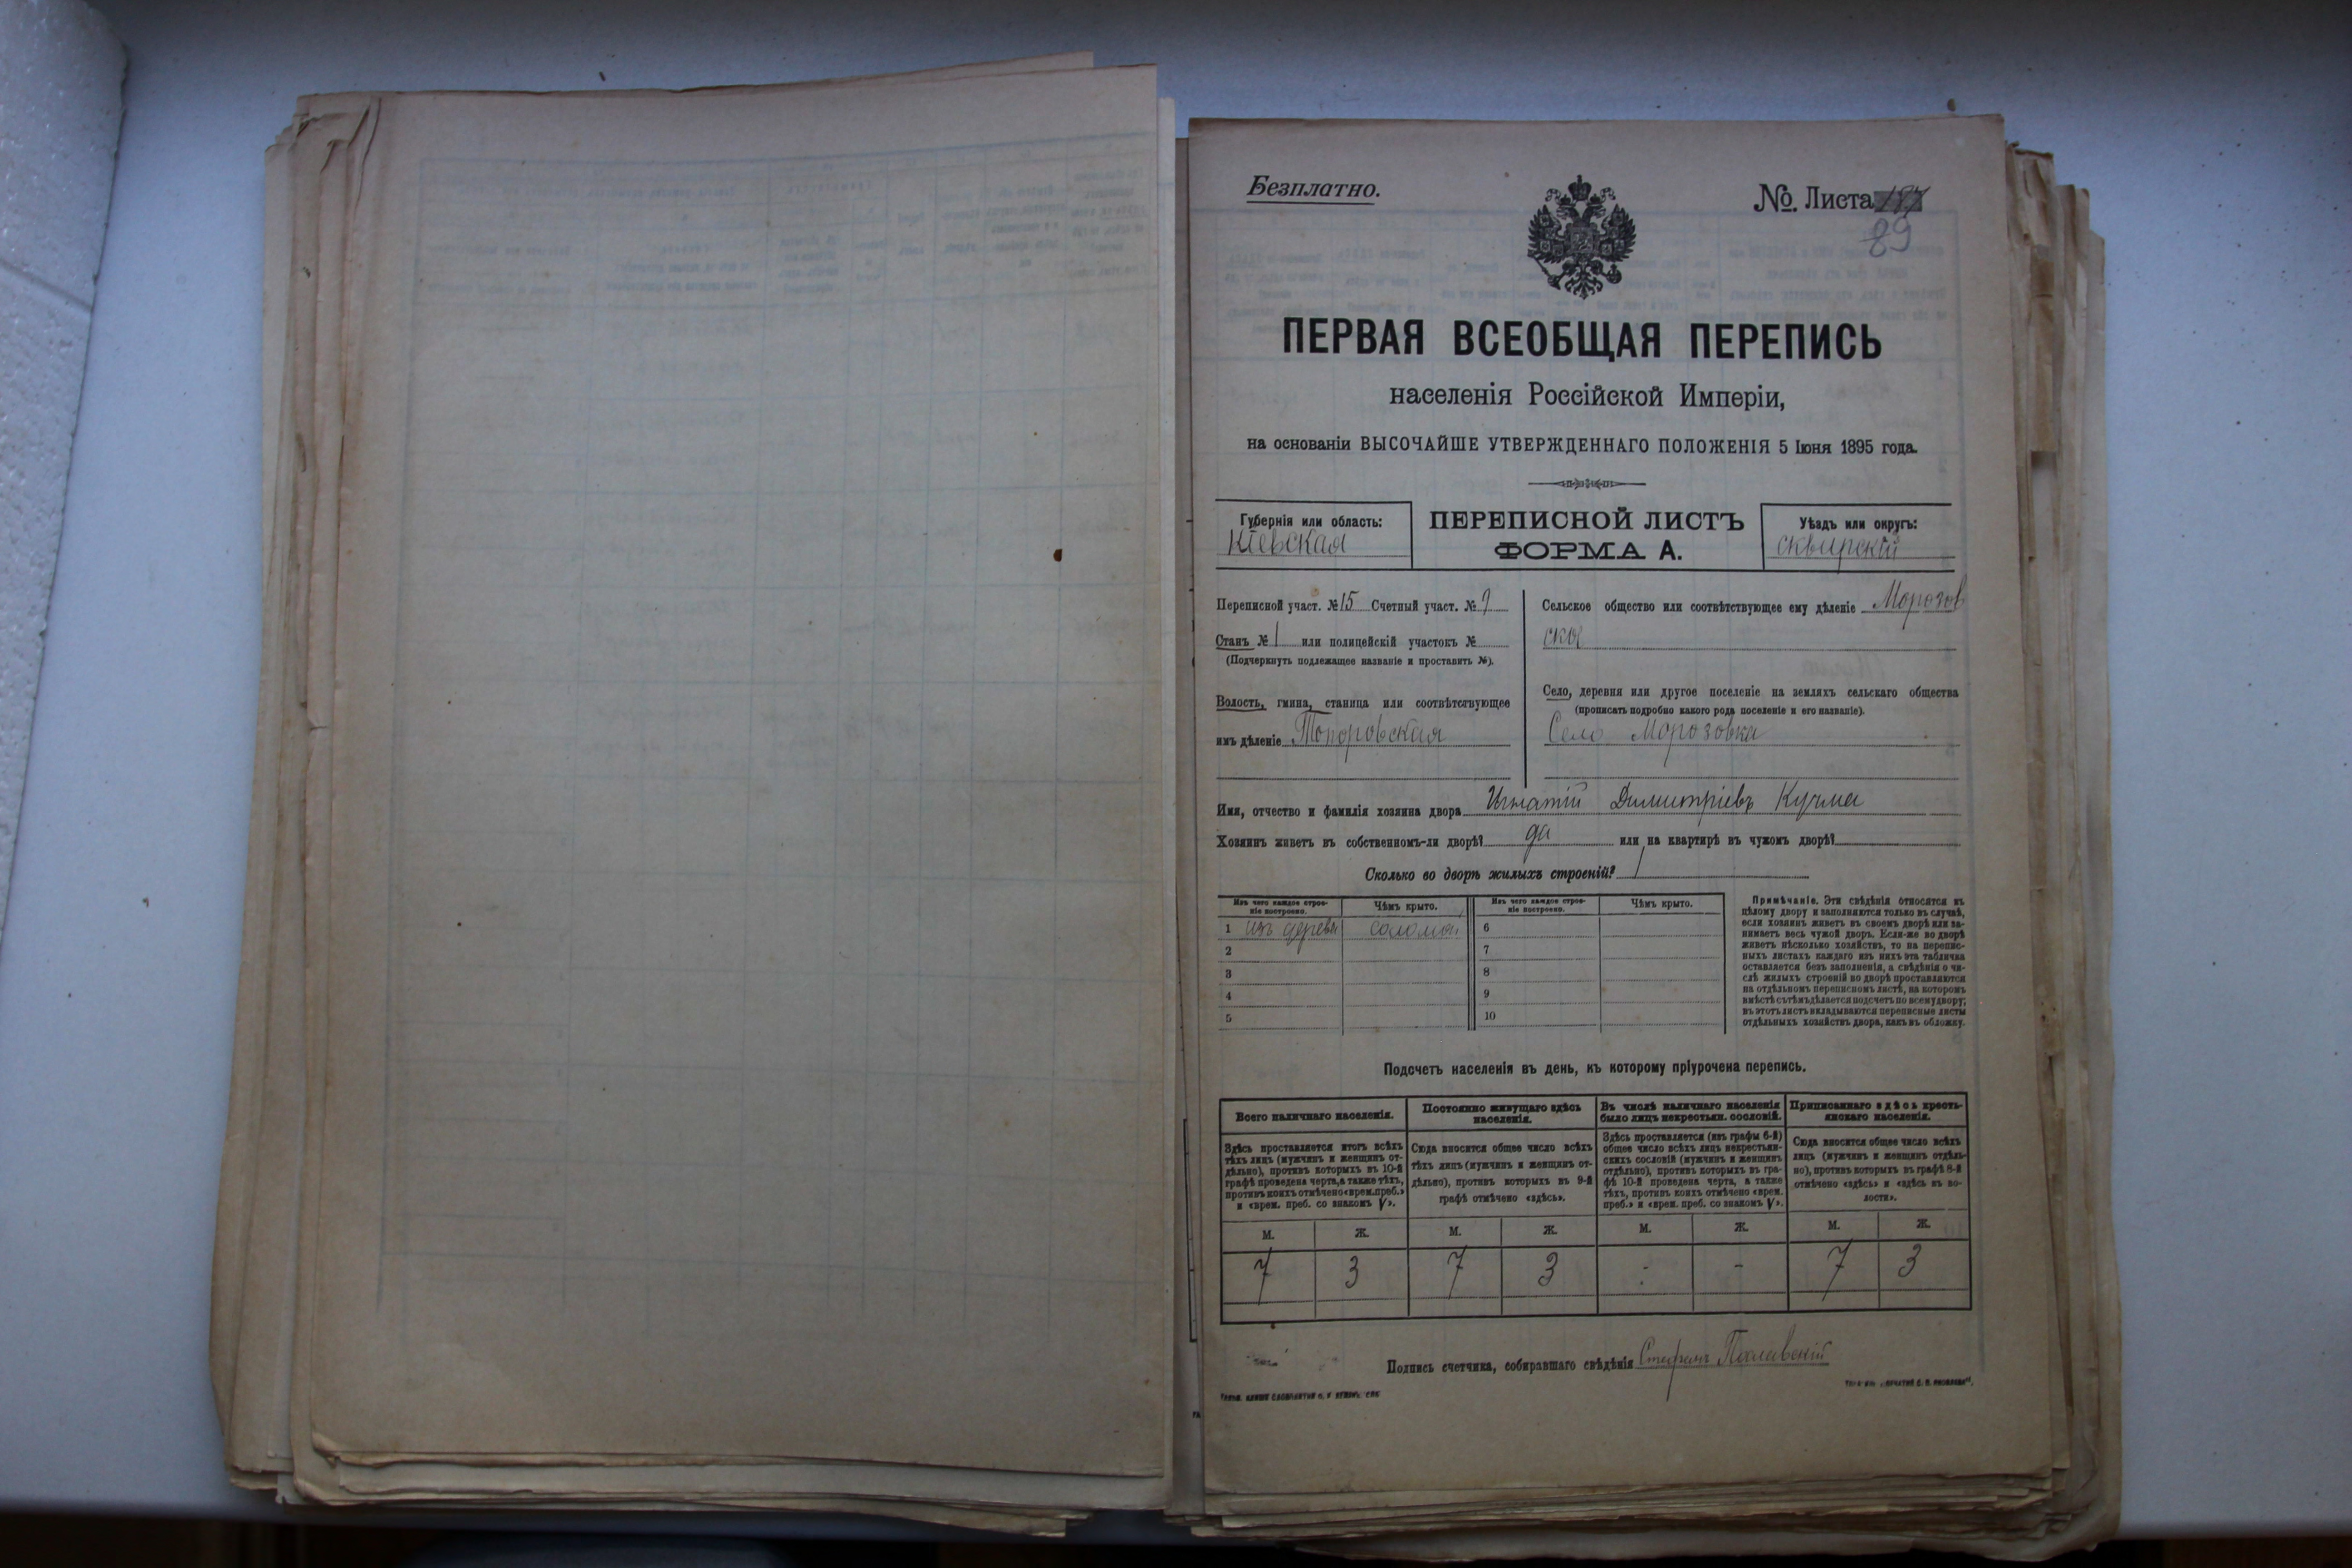 Безплатно.
№. Листа
89
ПЕРВАЯ ВСЕОБЩАЯ ПЕРЕПИСЬ
населенія Россійской Имперіи,
на основаніи ВЫСОЧАЙШЕ УТВЕРЖДЕННАГО ПОЛОЖЕНІЯ 5 Іюня 1895 года.
Губернія или область:
Кіевская
ПЕРЕПИСНОЙ ЛИСТЪ
ФОРМА А.
Уѣздъ или округъ:
сквирскій
Переписной участ. № 15 Счетный участ. №
Станъ № 1 или полицейскій участокъ №
(Подчеркнуть подлежащее названіе и проставить №).
Волость, гмина, станица или соотвѣтствующее
имъ дѣленіе Топоровская
Сельское общество или соотвѣтствующее ему дѣленіе Морозов
ско
Село, деревня или другое поселеніе на земляхъ сельскаго общества
(прописать подробно какого рода поселеніе и его названіе).
Село Морозовка
Имя, отчество и фамилія хозяина двора Игнатій Димитріевъ Кучма
Хозяинъ живетъ въ собственномъ-ли дворѣ? да или на квартирѣ въ чужомъ дворѣ?
Сколько во дворѣ жилыхъ строеній? 1
Изъ чего каждое строе-
ніе построено.
Чѣмъ крыто.
Изъ чего каждое строе-
ніе построено.
Чѣмъ крыто.
1 изъ дерева соломой 6
2 7
3 8
4 9
5 10
Примѣчаніе. Эти свѣдѣнія относятся къ
цѣлому двору и заполняются только въ случаѣ,
если хозяинъ живетъ въ своемъ дворѣ или за-
нимаетъ весь чужой дворъ. Если-же во дворѣ
живетъ нѣсколько хозяйствъ, то на перепис-
ныхъ листахъ каждаго изъ нихъ эта табличка
оставляется безъ заполненія, а свѣдѣнія о чи-
слѣ жилыхъ строеній во дворѣ проставляются
на отдѣльномъ переписномъ листѣ, на которомъ
вмѣстѣ съ тѣмъ дѣлается подсчетъ по всему двору;
въ этотъ листъ вкладываются переписные листы
отдѣльныхъ хозяйствъ двора, какъ въ обложку.
Подсчетъ населенія въ день, къ которому пріурочена перепись.
Всего наличнаго населенія.
Здѣсь проставляется итогъ всѣхъ
тѣхъ лицъ (мужчинъ и женщинъ от-
дѣльно), противъ которыхъ въ 10-й
графѣ проведена черта, а также тѣхъ,
противъ коихъ отмѣчено «врем. преб.»
и «врем. преб. со знакомъ V».
Постоянно живущаго здѣсь
населенія.
Сюда вносится общее число всѣхъ
тѣхъ лицъ (мужчинъ и женщинъ от-
дѣльно), противъ которыхъ въ 9-й
графѣ отмѣчено «здѣсь».
Въ числѣ наличнаго населенія
было лицъ некрестьян. сословій.
Здѣсь проставляется (изъ графы 6-й)
общее число всѣхъ лицъ некрестьян-
скихъ сословій (мужчинъ и женщинъ
отдѣльно), противъ которыхъ въ гра-
фѣ 10-й проведена черта, а также
тѣхъ, противъ коихъ отмѣчено «врем.
преб.» и «врем. преб. со знакомъ V».
Приписаннаго здѣсь кресть-
янскаго населенія.
Сюда вносится общее число всѣхъ
лицъ (мужчинъ и женщинъ отдѣль-
но), противъ которыхъ въ графѣ 8-й
отмѣчено «здѣсь» и «здѣсь въ во-
лости».
М. Ж. М. Ж. М. Ж. М. Ж.
7 3 7 3 - - 7 3
Подпись счетчика, собиравшаго свѣдѣнія Стефанъ